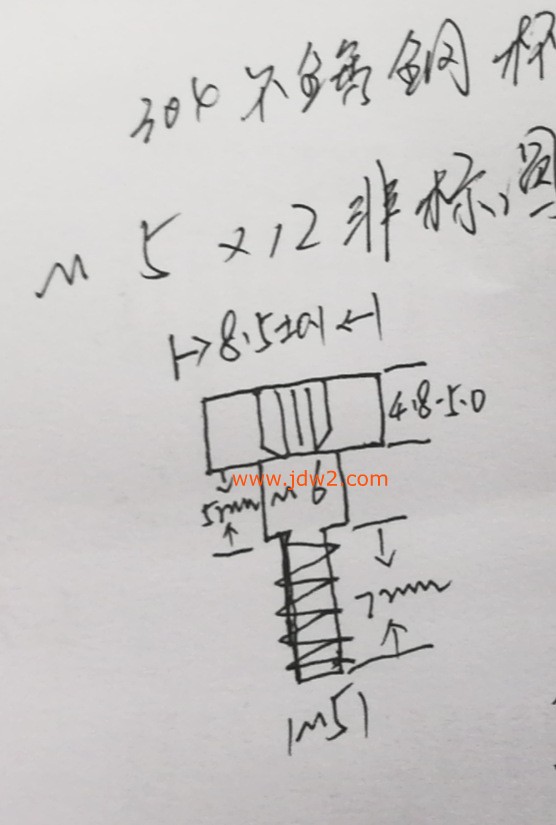 304不锈钢杯
M5×12非标,圆
8.5±0.1
4.8-5.0
www.jdw2.com
5mm
M6
7mm
M5